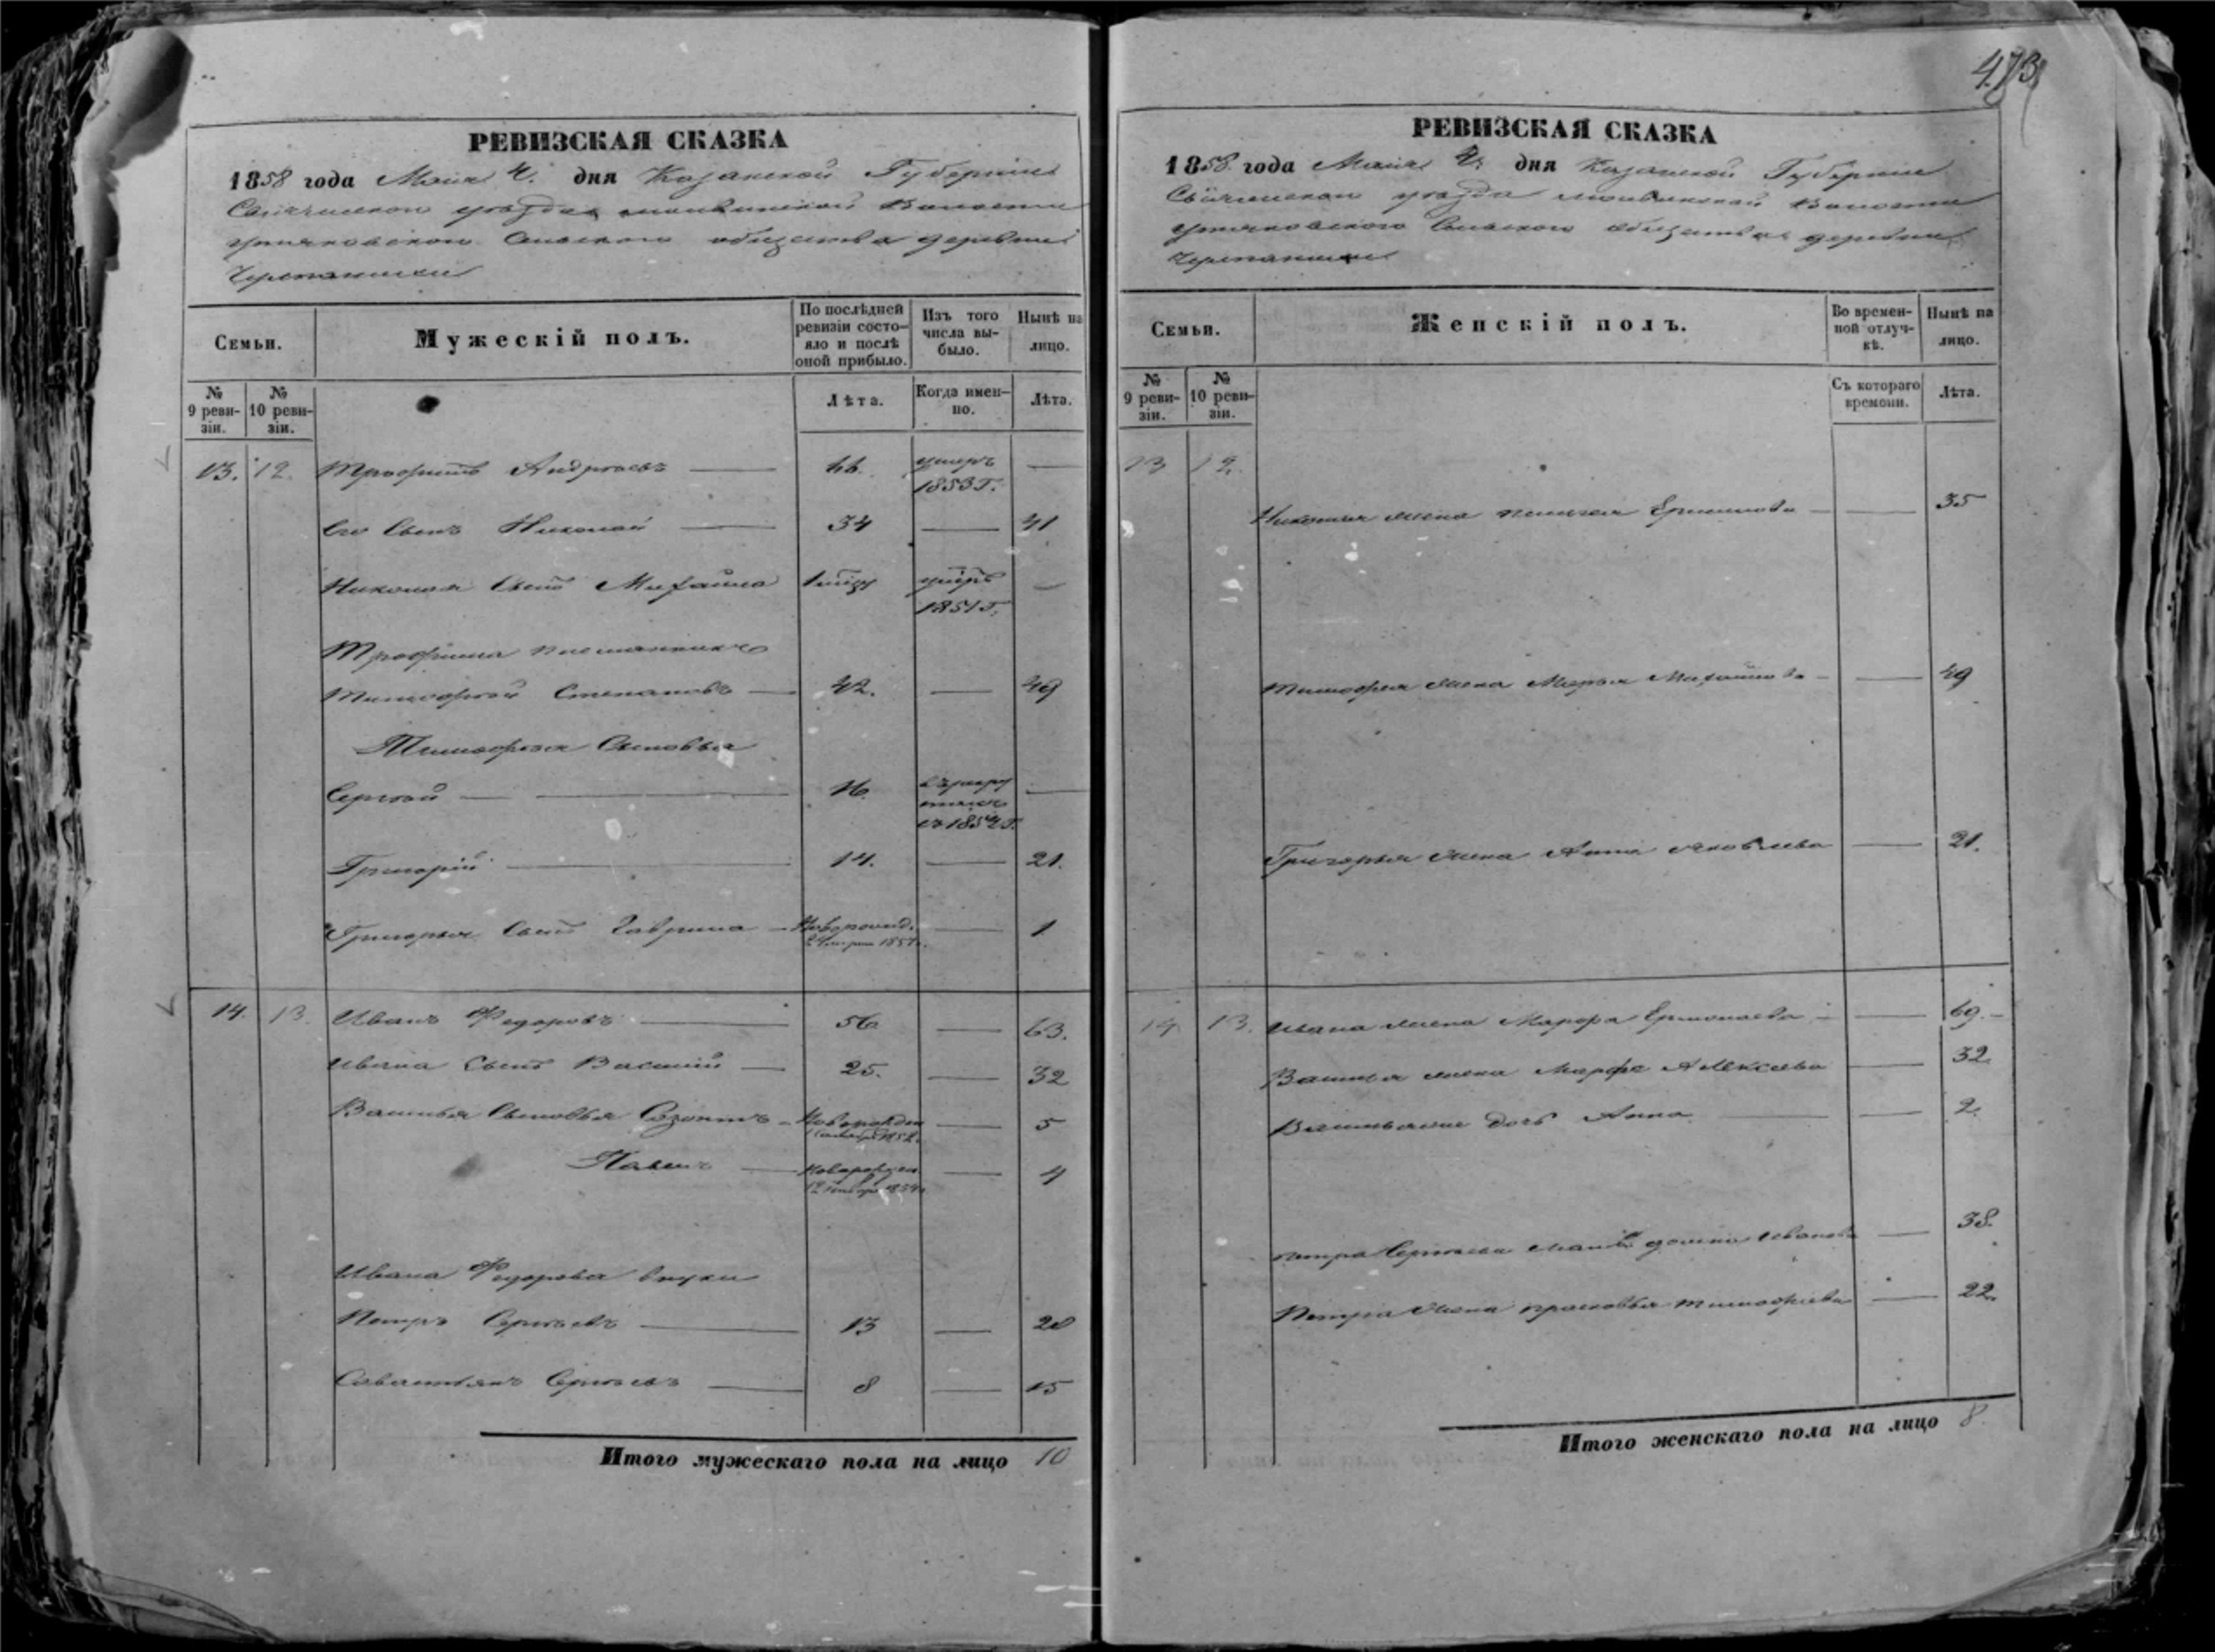 473
РЕВИЗСКАЯ СКАЗКА
1858 года Мая 4. дня Казанской Губерніи
уѣзда Волости
Сельскаго общества деревни
Семьи.
Мужескій полъ.
По послѣдней ревизіи состояло и послѣ оной прибыло.
Изъ того числа выбыло.
Нынѣ на лицо.
№ 9 ревизіи.
№ 10 ревизіи.
Лѣта.
Когда именно.
Лѣта.
13. 12. Трофимъ Андреевъ 46. умеръ 1853 г. —
Его Сынъ Николай 34 — 41
Николая Сынъ Михайла умеръ 1851 г. —
Трофима племянникъ
Тимофей Степановъ — 42. — 49
Тимофея Сыновья
Сергей — 16. —
Григорій — 14. — 21.
Григорья Сынъ Гаврила — Новорожд. — 1
14. 13. Иванъ Федоровъ — 56 — 63.
Ивана Сынъ Василій — 25. — 32
Василья Сыновья Созонтъ — Новорожден — 5
Павелъ — новорожден — 4
Ивана Федорова внуки
Петръ Сергеевъ — 13 — 20
Савастьянъ Сергеевъ — 8 — 15
Итого мужескаго пола на лицо 10
РЕВИЗСКАЯ СКАЗКА
1858 года Мая 4 дня Казанской Губерніи
уѣзда Волости
Сельскаго общества деревни
Семьи.
Женскій полъ.
Во временной отлучкѣ.
Нынѣ на лицо.
№ 9 ревизіи.
№ 10 ревизіи.
Съ котораго времени.
Лѣта.
13 12.
Николая жена — — 35
Тимофея жена Марья Михайлова — — 49
Григорья жена Анна Яковлева — 21.
14 13. Ивана жена Марфа — — 69. —
Василья жена Марфа Алексева — 32.
дочь Анна — — 2.
Петра Сергеева Иванова — 38.
Петра жена Прасковья Тимофеева — 22.
Итого женскаго пола на лицо 8.